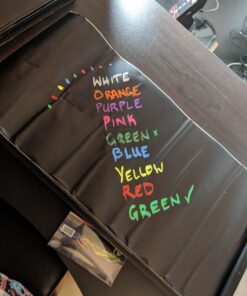 WHITE
ORANGE
PURPLE
PINK
GREEN x
BLUE
YELLOW
RED
GREEN ✓